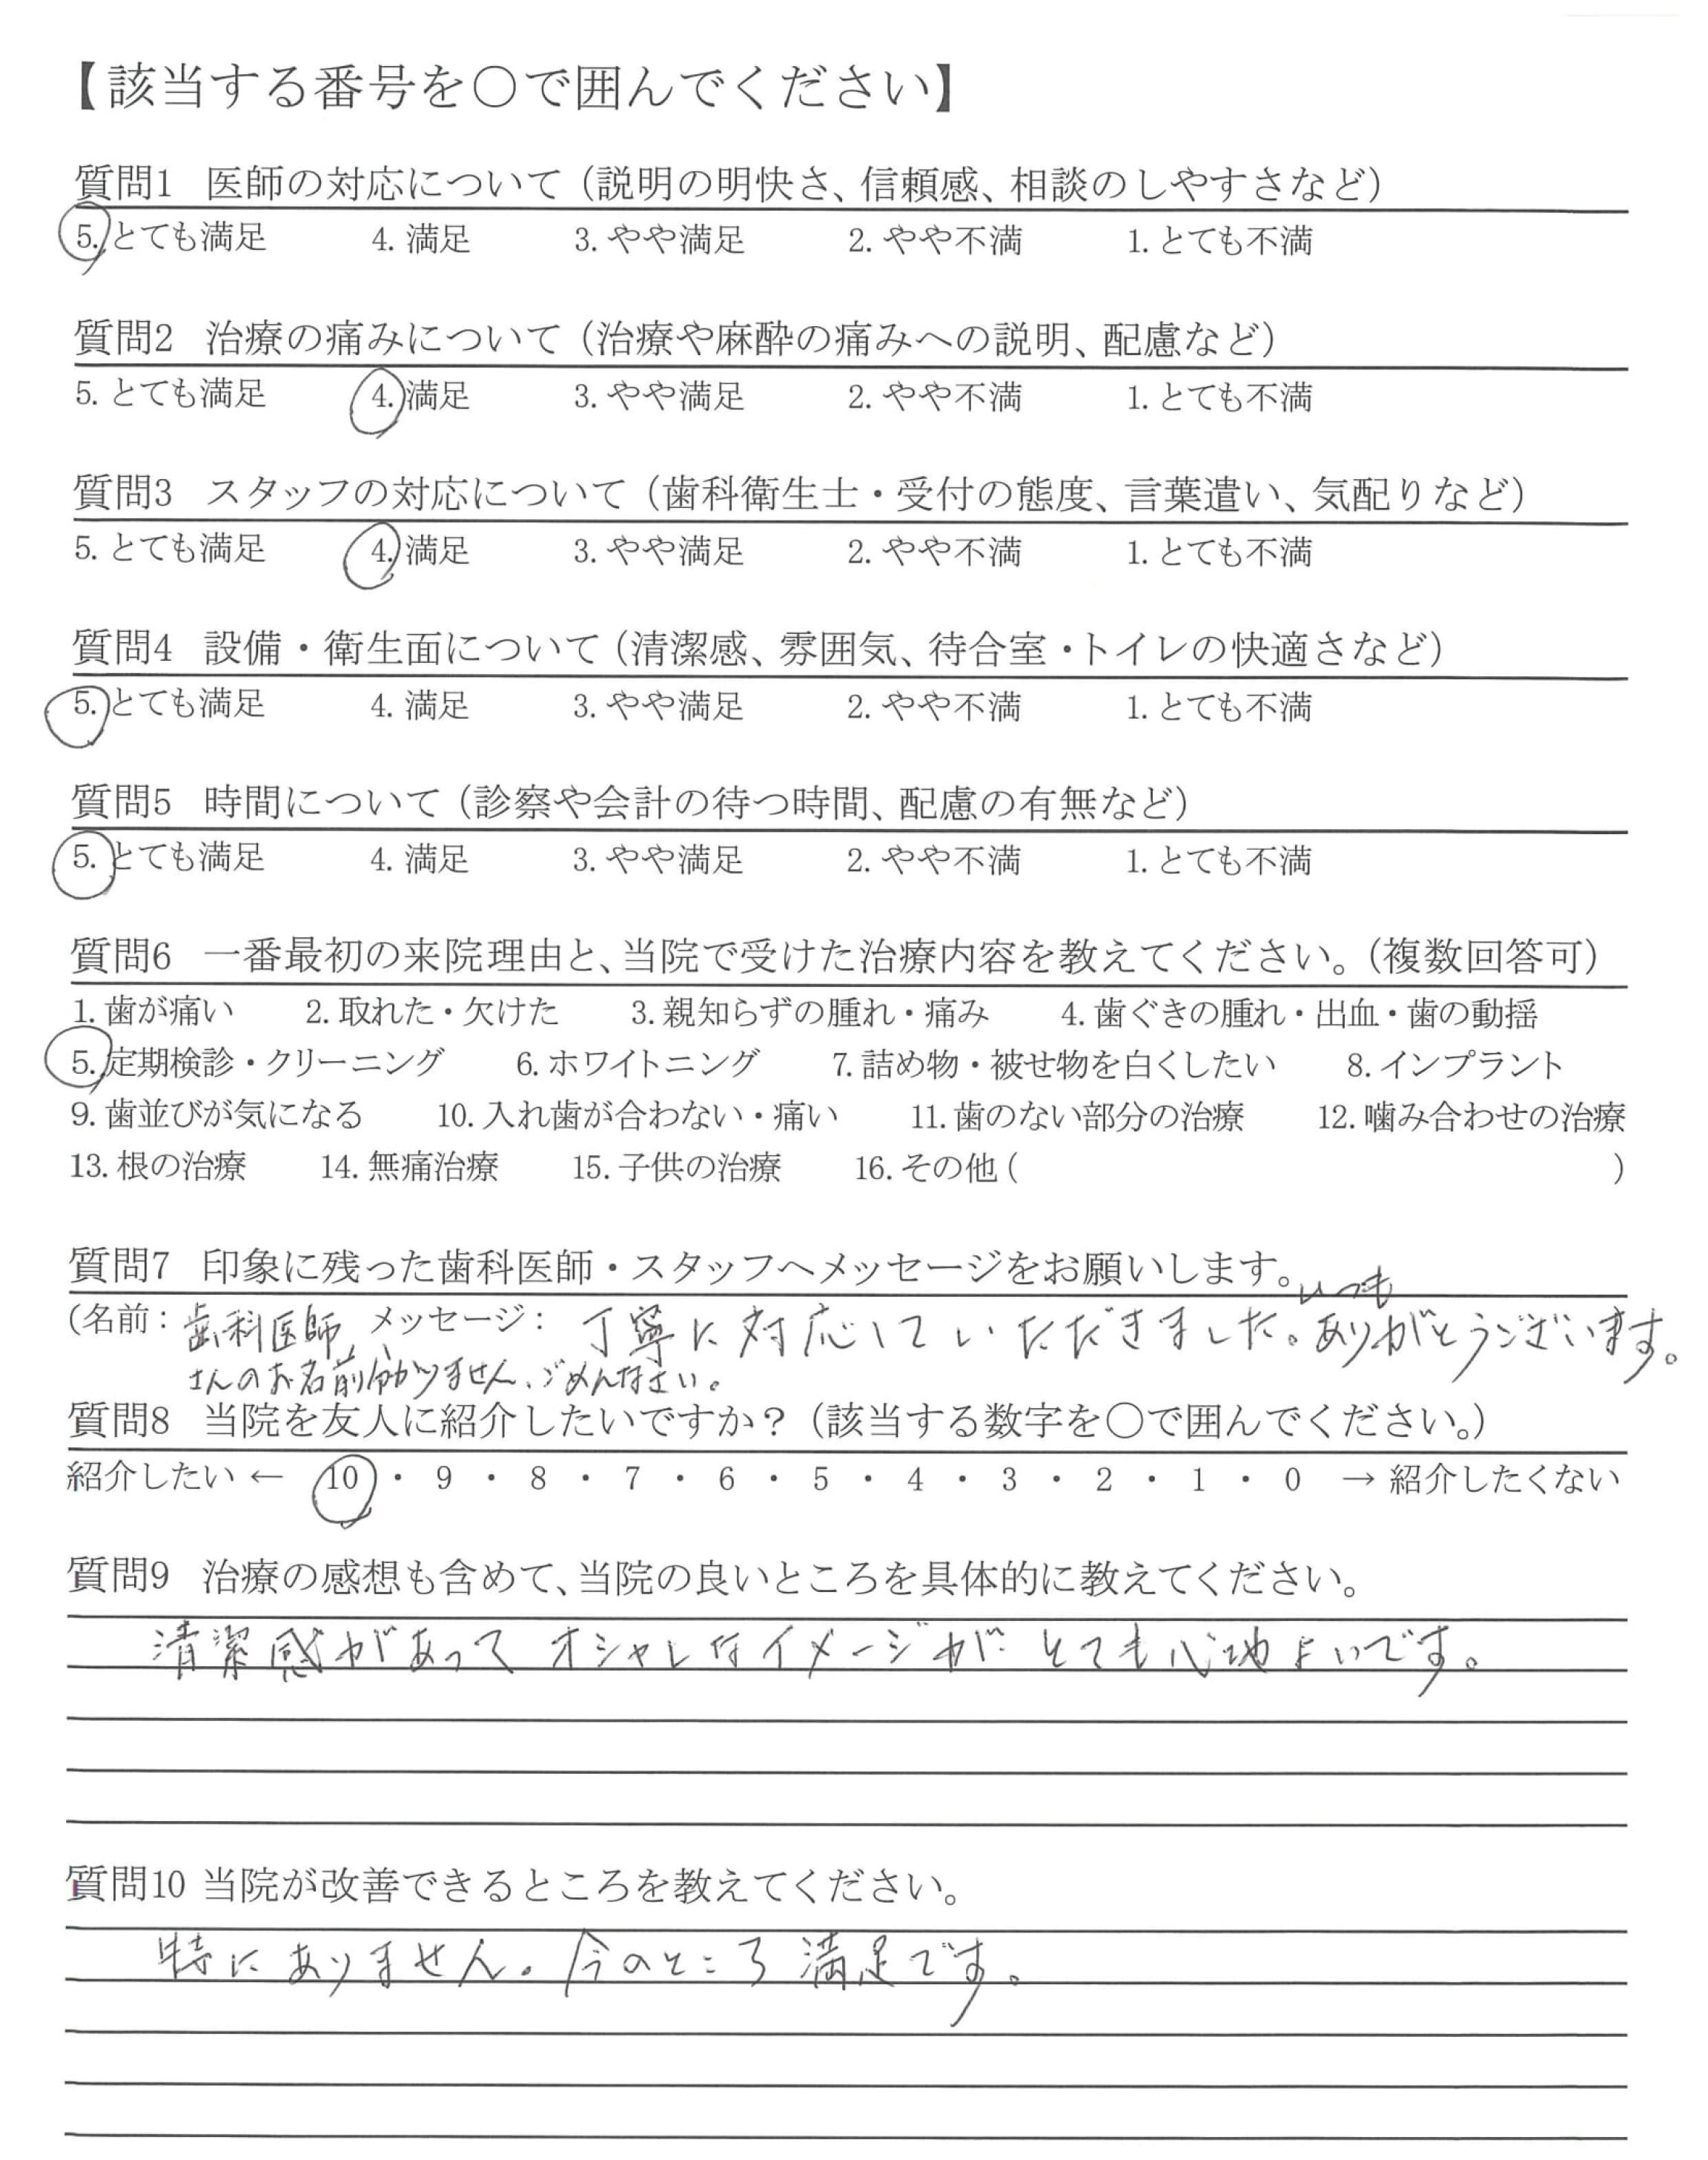 【該当する番号を〇で囲んでください】
質問1 医師の対応について（説明の明快さ、信頼感、相談のしやすさなど）
5. とても満足 4. 満足 3. やや満足 2. やや不満 1. とても不満
質問2 治療の痛みについて（治療や麻酔の痛みへの説明、配慮など）
5. とても満足 4. 満足 3. やや満足 2. やや不満 1. とても不満
質問3 スタッフの対応について（歯科衛生士・受付の態度、言葉遣い、気配りなど）
5. とても満足 4. 満足 3. やや満足 2. やや不満 1. とても不満
質問4 設備・衛生面について（清潔感、雰囲気、待合室・トイレの快適さなど）
5. とても満足 4. 満足 3. やや満足 2. やや不満 1. とても不満
質問5 時間について（診察や会計の待つ時間、配慮の有無など）
5. とても満足 4. 満足 3. やや満足 2. やや不満 1. とても不満
質問6 一番最初の来院理由と、当院で受けた治療内容を教えてください。（複数回答可）
1. 歯が痛い 2. 取れた・欠けた 3. 親知らずの腫れ・痛み 4. 歯ぐきの腫れ・出血・歯の動揺
5. 定期検診・クリーニング 6. ホワイトニング 7. 詰め物・被せ物を白くしたい 8. インプラント
9. 歯並びが気になる 10. 入れ歯が合わない・痛い 11. 歯のない部分の治療 12. 噛み合わせの治療
13. 根の治療 14. 無痛治療 15. 子供の治療 16. その他 ( )
質問7 印象に残った歯科医師・スタッフへメッセージをお願いします。
いつも
(名前： 歯科医師 メッセージ： 丁寧に対応していただきました。ありがとうございます。
さんのお名前分かりません、ごめんなさい。
質問8 当院を友人に紹介したいですか？（該当する数字を〇で囲んでください。）
紹介したい ← 10 ・ 9 ・ 8 ・ 7 ・ 6 ・ 5 ・ 4 ・ 3 ・ 2 ・ 1 ・ 0 → 紹介したくない
質問9 治療の感想も含めて、当院の良いところを具体的に教えてください。
清潔感があって オシャレなイメージが とても心地よいです。
質問10 当院が改善できるところを教えてください。
特にありません。今のところ満足です。